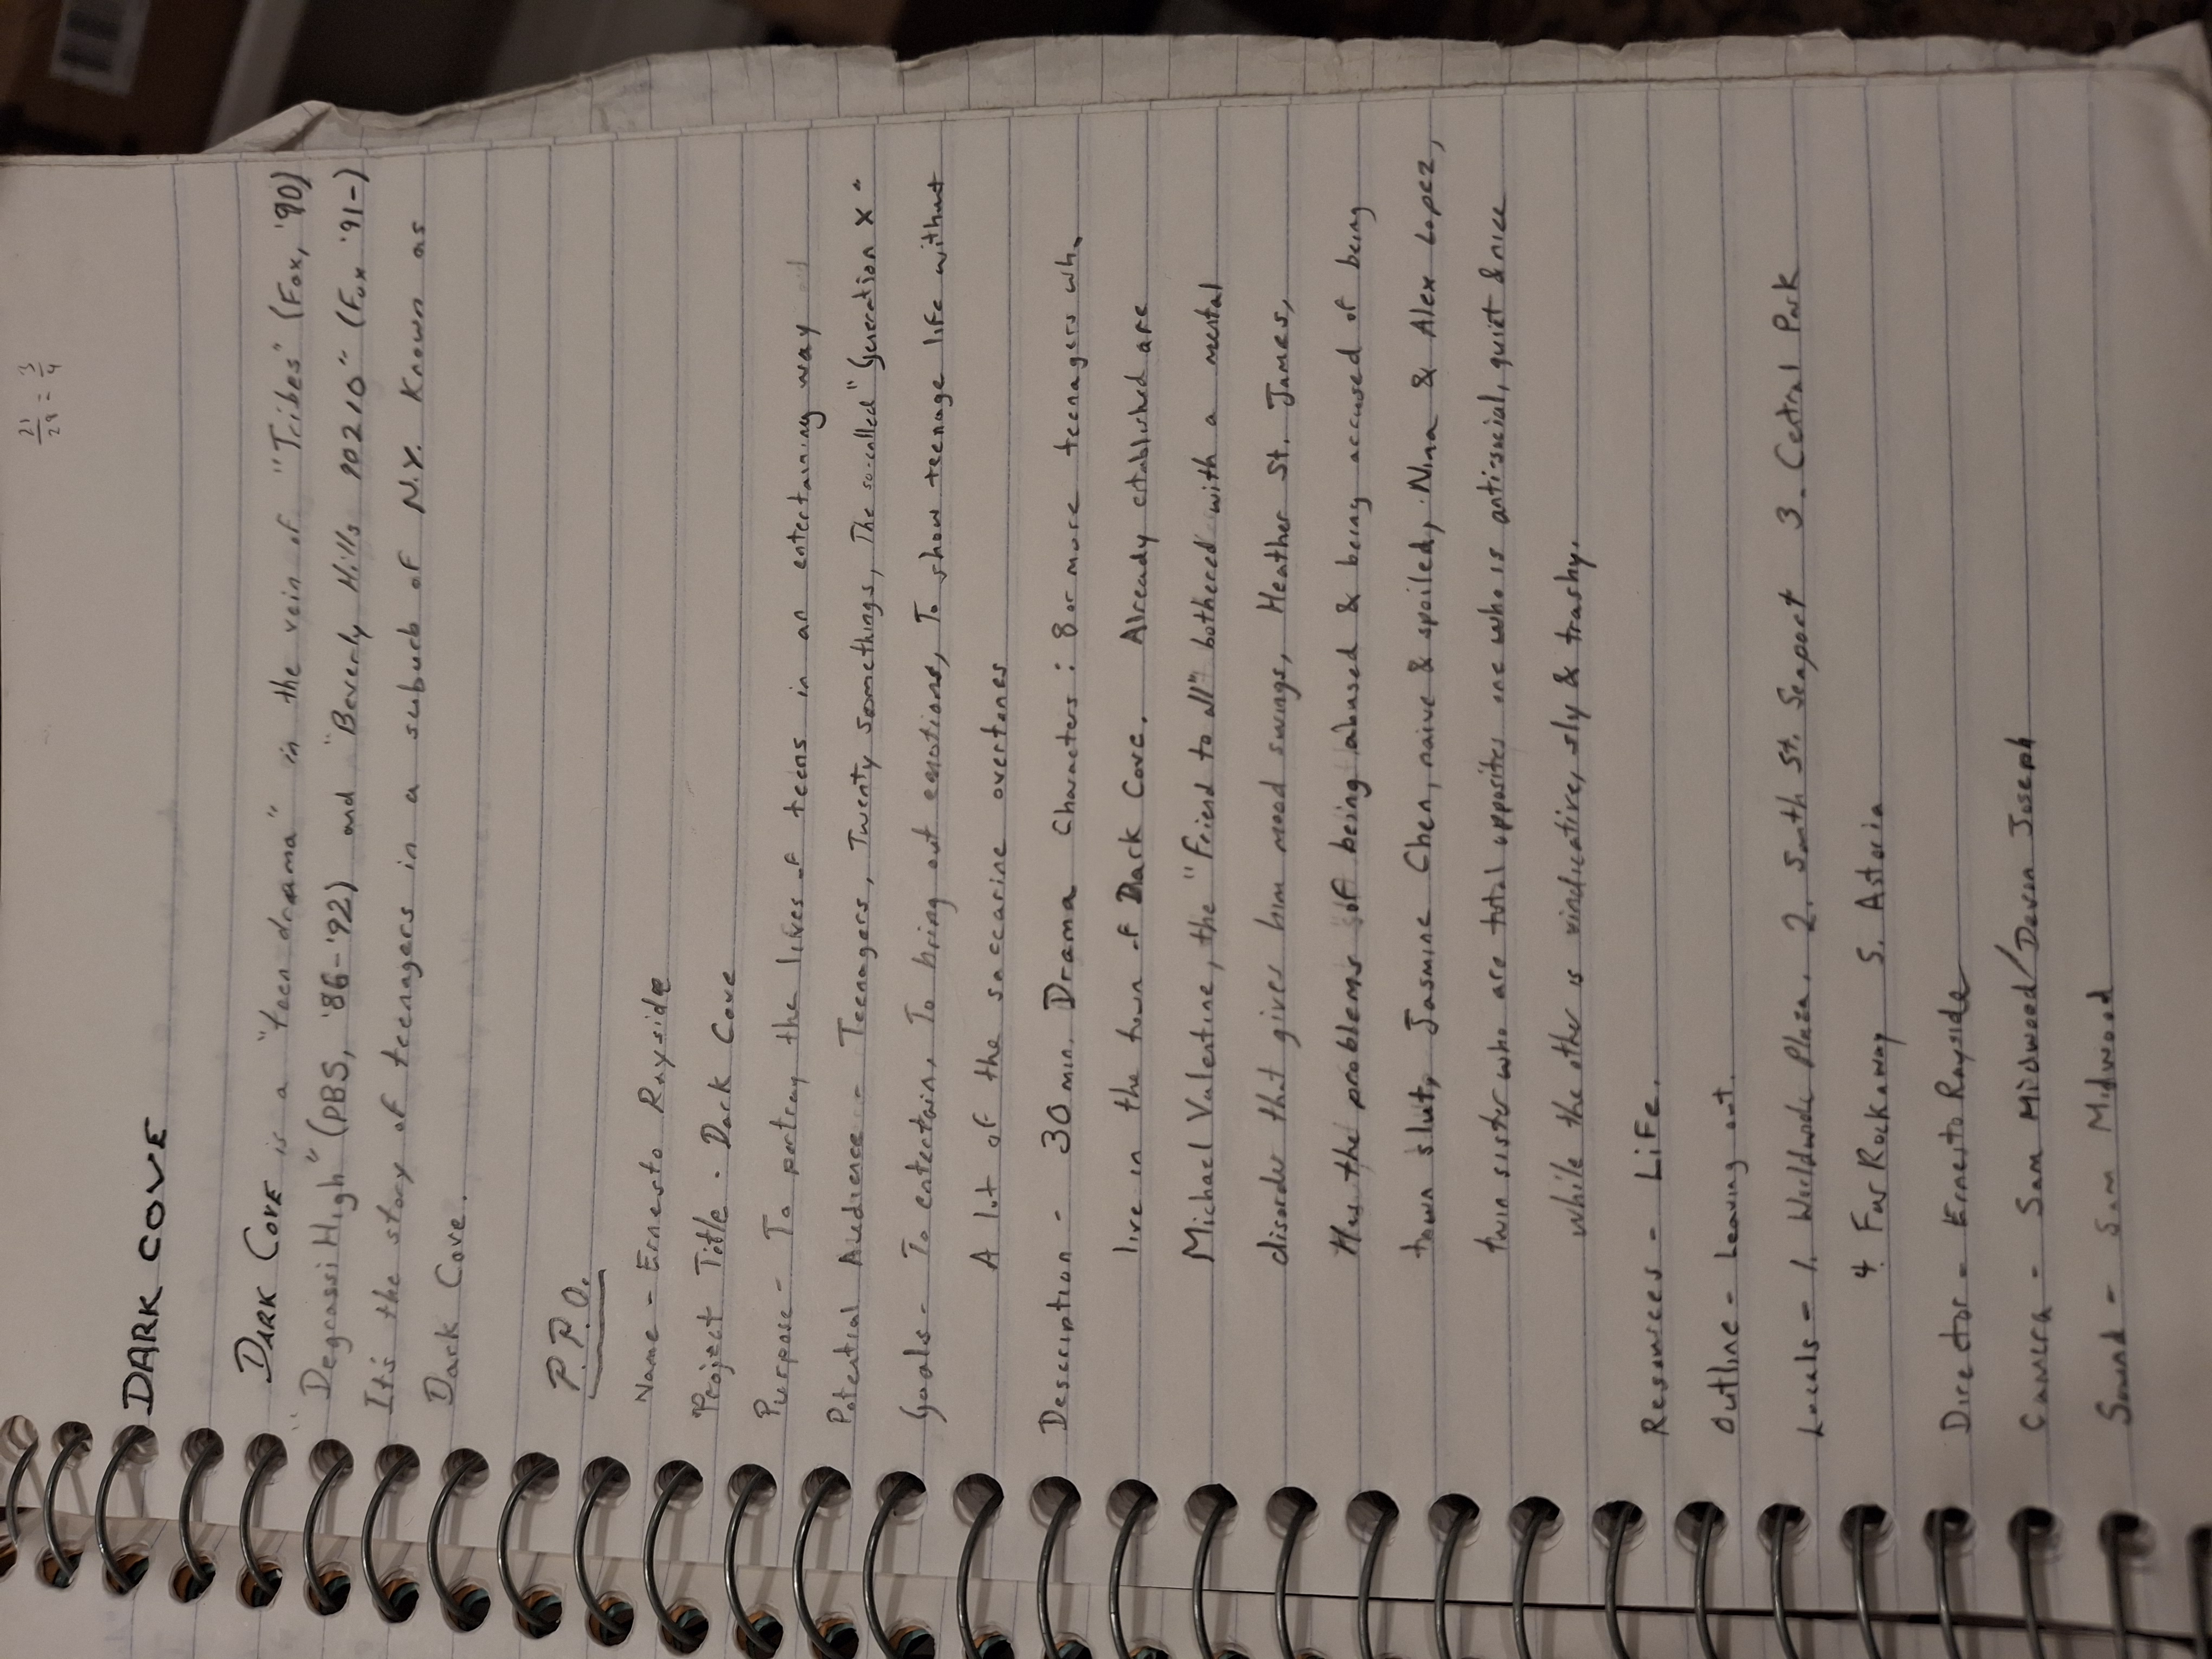 21/28 = 3/4
DARK COVE
DARK COVE is a "teen drama" in the vein of "Tribes" (Fox, '90)
"Degrassi High" (PBS, '86-'92) and "Beverly Hills 90210" (Fox '91-)
It's the story of teenagers in a suburb of N.Y. Known as
Dark Cove.
P.P.O.
Name - Ernesto Rayside
Project Title - Dark Cove
Purpose - To portray the lives of teens in an entertaining way
Potential Audience - Teenagers, Twenty Somethings, The so-called "Generation X"
Goals - To entertain, To bring out emotions, To show teenage life without
A lot of the saccarine overtones
Description - 30 min. Drama Characters: 8 or more teenagers who
live in the town of Dark Cove. Already established are
Michael Valentine, the "Friend to all" bothered with a mental
disorder that gives him mood swings, Heather St. James,
Has the problems of being abused & being accused of being
town slut, Jasmine Chen, naive & spoiled, Nina & Alex Lopez,
twin sister who are total opposites one who is anti-social, quiet & nice
while the other is vindicative, sly & trashy.
Resources - Life.
Outline - Leaving out.
Locals - 1. Worldwide Plaza. 2. South St. Seaport 3. Central Park
4. Far Rockaway 5. Astoria
Director - Ernesto Rayside
Camera - Sam Midwood/Devon Joseph
Sound - Sam Midwood